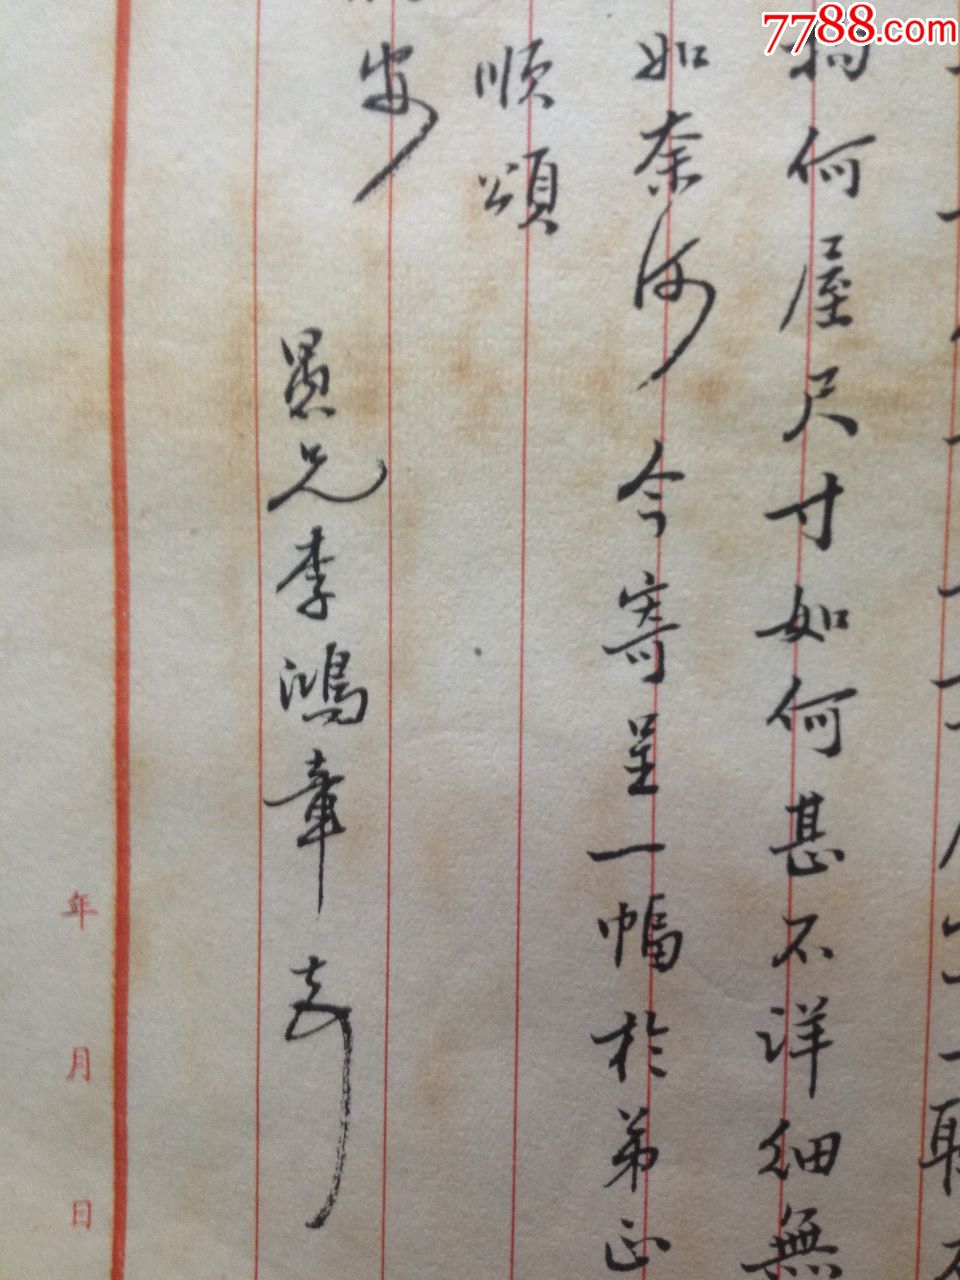 何屋尺寸如何甚不洋细無
如奈何今寄呈一幅於弟正
順頌
安
愚兄李鴻章
年月日
7788.com